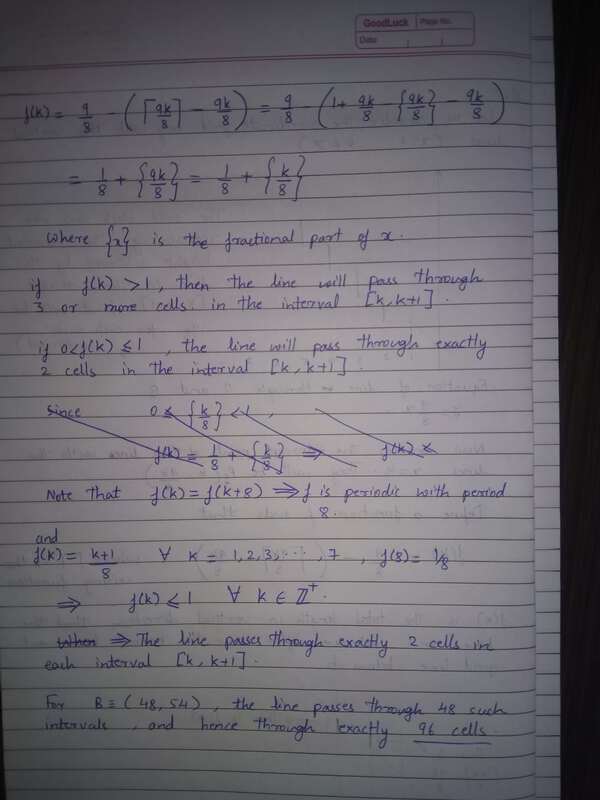 GoodLuck Page No.
Date
f(k) = 9/8 - (⌈9k/8⌉ - 9k/8) = 9/8 - (1 + 9k/8 - {9k/8} - 9k/8)
= 1/8 + {9k/8} = 1/8 + {k/8}
where {x} is the fractional part of x.
if f(k) > 1, then the line will pass through
3 or more cells in the interval [k, k+1].
if 0 < f(k) ≤ 1, the line will pass through exactly
2 cells in the interval [k, k+1]
Since 0 ≤ {k/8} < 1,
f(k) = 1/8 + {k/8} ⇒ f(k) ≤
Note that f(k) = f(k+8) ⇒ f is periodic with period
8
and
f(k) = (k+1)/8 ∀ k = 1, 2, 3, ..., 7, f(8) = 1/8
⇒ f(k) ≤ 1 ∀ k ∈ ℤ⁺.
When ⇒ The line passes through exactly 2 cells in
each interval [k, k+1].
For B ≡ (48, 54), the line passes through 48 such
intervals, and hence through exactly 96 cells.